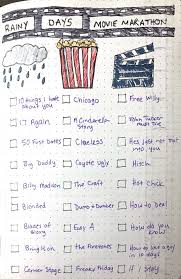 RAINY DAYS MOVIE MARATHON
10 things i hate about you
Chicago
Free Willy
17 Again
A Cinderella Story
John Tucker must Die
50 First Dates
Clueless
Hes just not that into you
Big Daddy
Coyote Ugly
Hitch
Billy Madison
The Craft
Hot Chick
Blended
Dumb & Dumber
How to Deal
Easy A
How do you know
Bring it on
How to lose a guy in 10 days
Center Stage
Freaky Friday
If I Stay